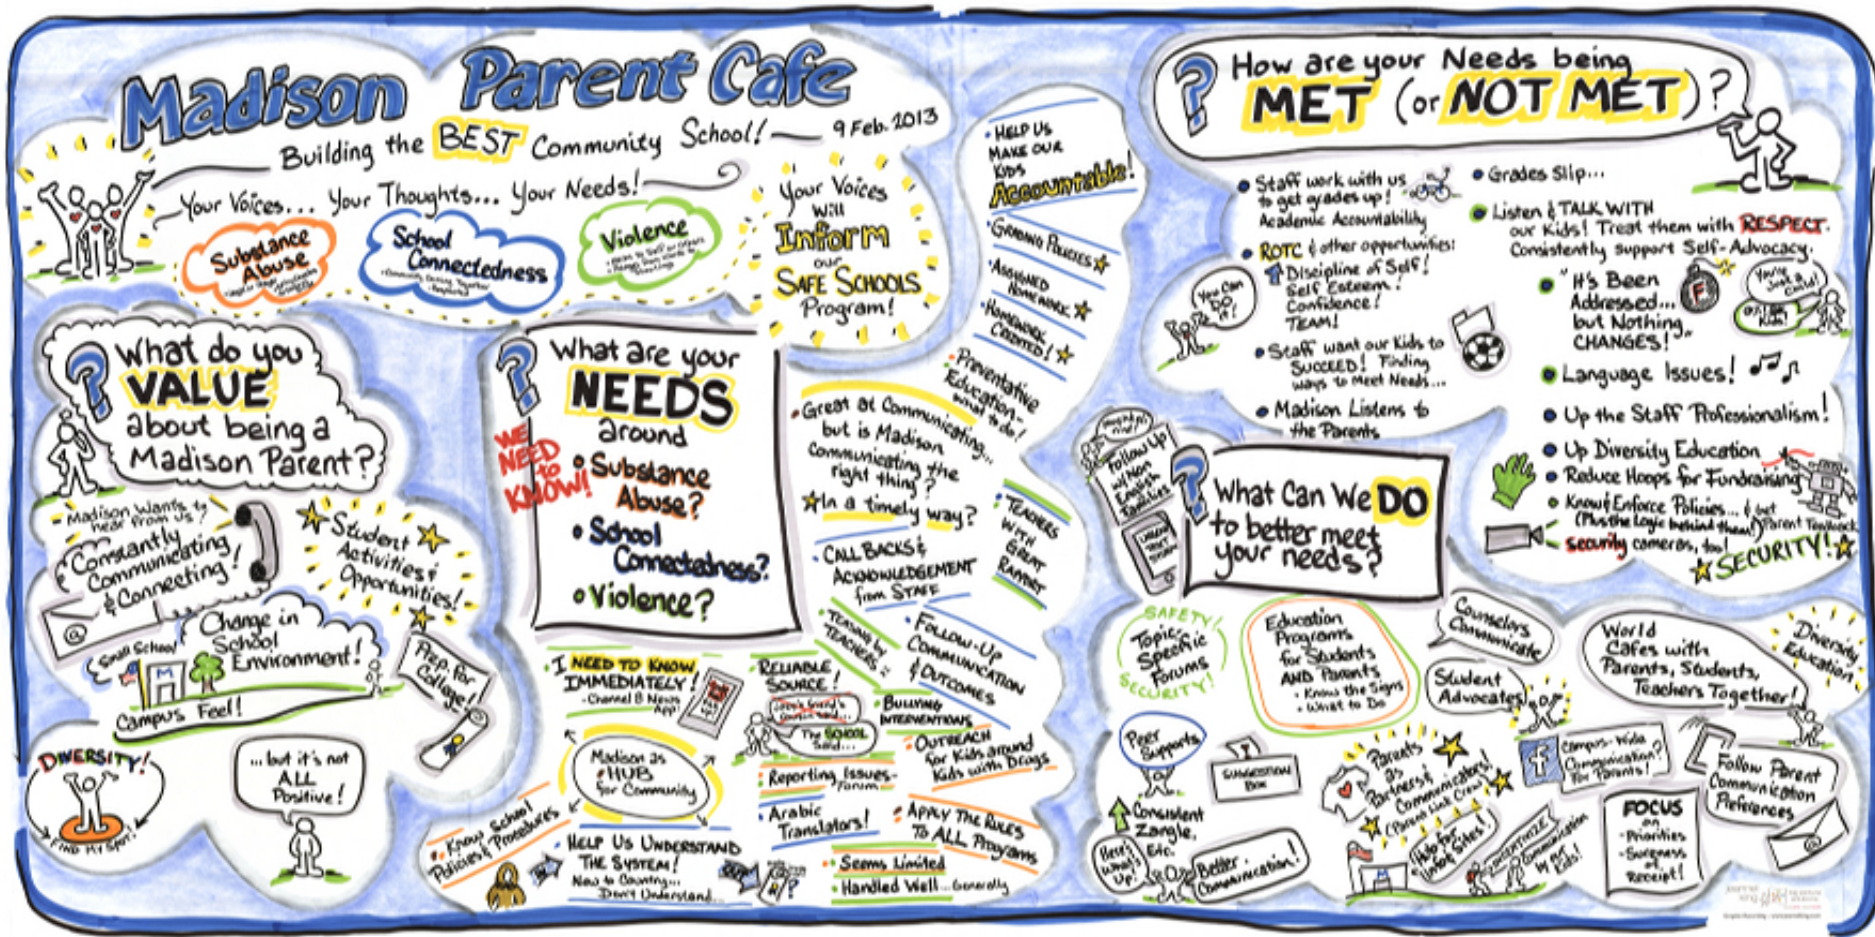 Madison Parent Cafe
Building the BEST Community School! — 9 Feb. 2013
Your Voices... Your Thoughts... Your Needs!
Substance
Abuse
School
Connectedness
Violence
Your Voices
Will
Inform
our
SAFE SCHOOLS
Program!
What do you
VALUE
about being a
Madison Parent?
Madison Wants to
hear from us!
Constantly
Communicating
& Connecting!
@
Student
Activities &
Opportunities!
Small School
Change in
School
Environment!
M
Campus Feel!
Prep. for
College!
DIVERSITY!
FIND MY SPOT!
... but it's not
ALL
Positive!
What are your
NEEDS
around
• Substance
Abuse?
• School
Connectedness?
• Violence?
WE
NEED
to
KNOW!
• I NEED TO KNOW
IMMEDIATELY!
- Channel 8 News
App!
RELIABLE
SOURCE!
The SCHOOL
Said...
Madison as
HUB
for Community
• Know School
Policies & Procedures
• HELP US UNDERSTAND
THE SYSTEM!
New to Country...
Don't Understand...
• Reporting Issues-
Forum
• Arabic
Translators!
• Seems Limited
• Handled Well... Generally
• HELP US
MAKE OUR
KIDS
Accountable!
• GRADING POLICIES
• ASSIGNED
HOMEWORK
• HOMEWORK
CREDITED!
• Preventative
Education-
what to do!
• Great at Communicating...
but is Madison
communicating the
right thing?
In a timely way?
• CALL BACKS &
ACKNOWLEDGEMENT
from STAFF
• TEACHERS
WITH
GREAT
RAPPORT
TEACHERS
• FOLLOW-UP
COMMUNICATION
& OUTCOMES
• BULLYING
INTERVENTIONS
• OUTREACH
for Kids around
Kids with Drugs
• APPLY THE RULES
TO ALL Programs
How are your Needs being
MET (or NOT MET)?
• Staff work with us
to get grades up!
Academic Accountability
• ROTC & other opportunities!
Discipline of Self!
Self Esteem!
Confidence!
TEAM!
You Can
DO
it!
• Staff want our Kids to
SUCCEED! Finding
ways to Meet Needs...
• Madison Listens to
the Parents
• Grades Slip...
• Listen & TALK WITH
our Kids! Treat them with RESPECT.
Consistently support Self-Advocacy.
• "It's Been
Addressed...
but Nothing
CHANGES!"
F
You're
Just a
Child!
• Language Issues!
• Up the Staff Professionalism!
• Up Diversity Education
• Reduce Hoops for Fundraising
• Know & Enforce Policies... & get
(Plus the Logic behind them!) Parent Feedback
• Security cameras, too!
SECURITY!
Follow Up
w/ Non
English
Families
What Can We DO
to better meet
your needs?
SAFETY!
Topic-
Specific
Forums
SECURITY!
Education
Programs
for Students
AND Parents
• Know the Signs
• What to Do
Counselors
Communicate
Student
Advocates
World
Cafes with
Parents, Students,
Teachers Together!
Diversity
Education
Peer
Supports
SUGGESTION
BOX
Consistent
Zangle,
Etc.
Here's
What's
Up!
Better
Communication!
Parents
as
Partners &
Communicators!
(Parent Link Crew)
f
Campus-Wide
Communication?
For Parents!
Follow Parent
Communication
Preferences
FOCUS
on
-Priorities
-Sureness
of
Receipt!
Communication
by our
Kids!